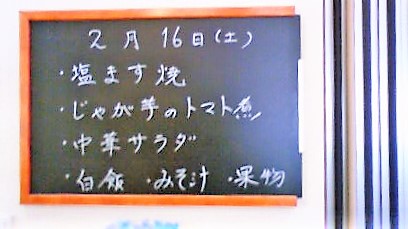 2月16日(土)
・塩ます焼
・じゃが芋のトマト煮
・中華サラダ
・白飯 ・みそ汁 ・果物